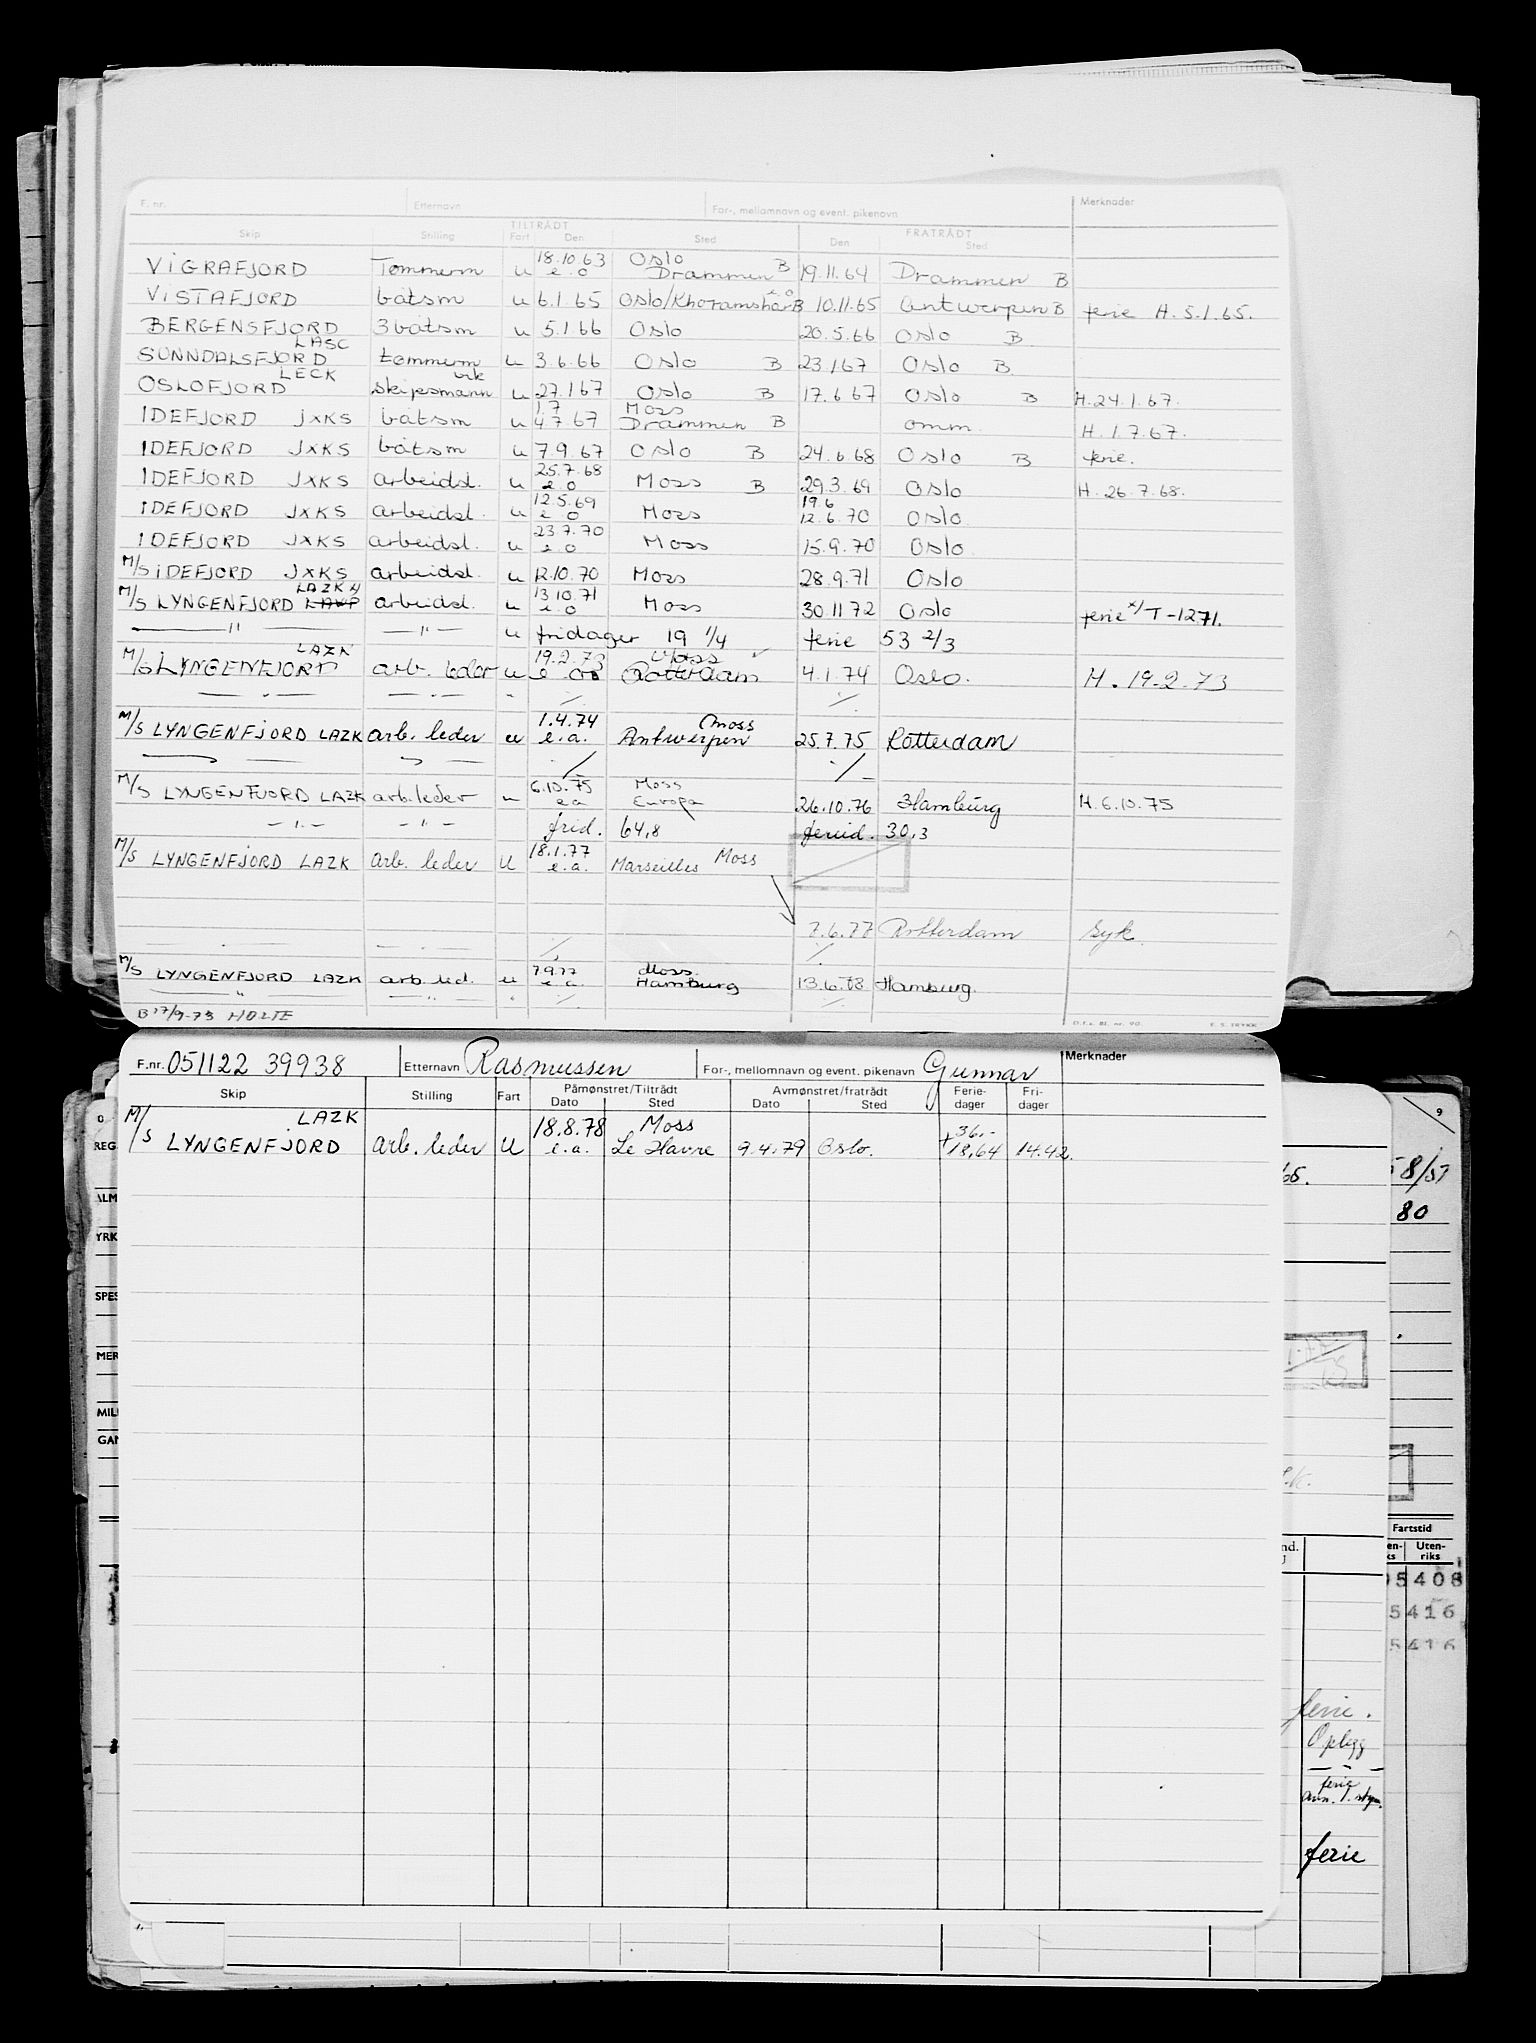 F. nr. Etternavn For-, mellomnavn og event. pikenavn Merknader
TILTRÅDT FRATRÅDT
Skip Stilling Fart Den Sted Den Sted
18.10.63 Oslo
VIGRAFJORD Tømmerm u e.o Drammen B 19.11.64 Drammen B
VISTAFJORD båtsm u 6.1.65 Oslo/Khoramshar B 10.11.65 Antwerpen B ferie H. 5.1.65.
BERGENSFJORD 3båtsm u 5.1.66 Oslo 20.5.66 Oslo B
LASC
SUNNDALSFJORD tømmerm u 3.6.66 Oslo B 23.1.67 Oslo B
LECK vik
OSLOFJORD skipsmann u 27.1.67 Oslo B 17.6.67 Oslo B H.24.1.67.
1.7 Moss
IDEFJORD JXKS båtsm u 4.7.67 Drammen B omm. H.1.7.67.
IDEFJORD JXKS båtsm u 7.9.67 Oslo B 24.6.68 Oslo B ferie.
25.7.68
IDEFJORD JXKS arbeidsl. u e.o Moss B 29.3.69 Oslo H. 26.7.68.
12.5.69 19.6
IDEFJORD JXKS arbeidsl. u e o Moss 12.6.70 Oslo
23.7.70
IDEFJORD JXKS arbeidsl. u e.o Moss 15.9.70 Oslo
M/S IDEFJORD JXKS arbeidsl. u 12.10.70 Moss 28.9.71 Oslo
LAZK 13.10.71
M/S LYNGENFJORD arbeidsl. u e.o Moss 30.11.72 Oslo ferie x/T-1271.
—"— —"— u fridager 19 1/4 ferie 53 2/3
LAZK 19.2.73 Moss
M/S LYNGENFJORD arb. leder u Rotterdam 4.1.74 Oslo. H. 19.2.73
1.4.74 Moss
M/S LYNGENFJORD LAZK arb. leder u e.a. Antwerpen 25.7.75 Rotterdam
6.10.75 Moss
M/S LYNGENFJORD LAZK arb.leder u e a Europa 26.10.76 Hamburg H.6.10.75
—"— —"— frid. 64,8 feried. 30,3
18.1.77 Moss
M/S LYNGENFJORD LAZK arb. leder U e.a. Marseilles
7.6.77 Rotterdam syk.
7.9.77 Moss.
M/S LYNGENFJORD LAZK arb. led. u e.a. Hamburg 13.6.78 Hamburg.
B 17/9-73 HOLTE
D.f.s. Bl. nr. 90. E. S. TRYKK
F.nr. 051122 39938 Etternavn Rasmussen For-, mellomnavn og event. pikenavn Gunnar Merknader
Skip Stilling Fart Påmønstret/Tiltrådt Avmønstret/fratrådt Ferie- Fri-
Dato Sted Dato Sted dager dager
M/S LAZK 18.8.78 Moss 36.-
LYNGENFJORD arb. leder U e.a. Le Havre 9.4.79 Oslo. +18,64 14.42.
9
REG.
58/57
65.
80
YRK
SPES
MER
MILI
GAN
Fartstid
Uten-
riks
5408
5416
5416
ferie.
Oplegg
ferie
ferie